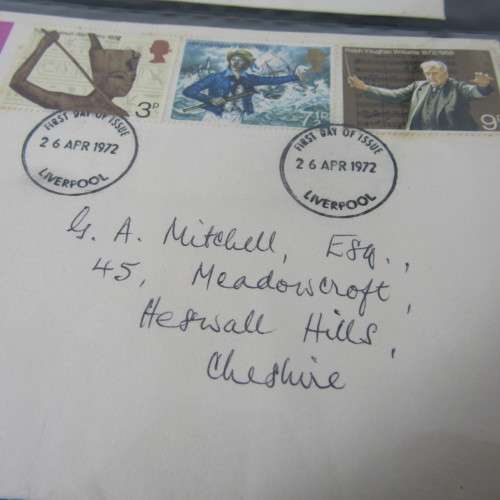 3P
7½P
Ralph Vaughan Williams 1872/1958
9P
FIRST DAY OF ISSUE
26 APR 1972
LIVERPOOL
FIRST DAY OF ISSUE
26 APR 1972
LIVERPOOL
G. A. Mitchell, Esq.,
45, Meadowcroft,
Heswall Hills,
Cheshire